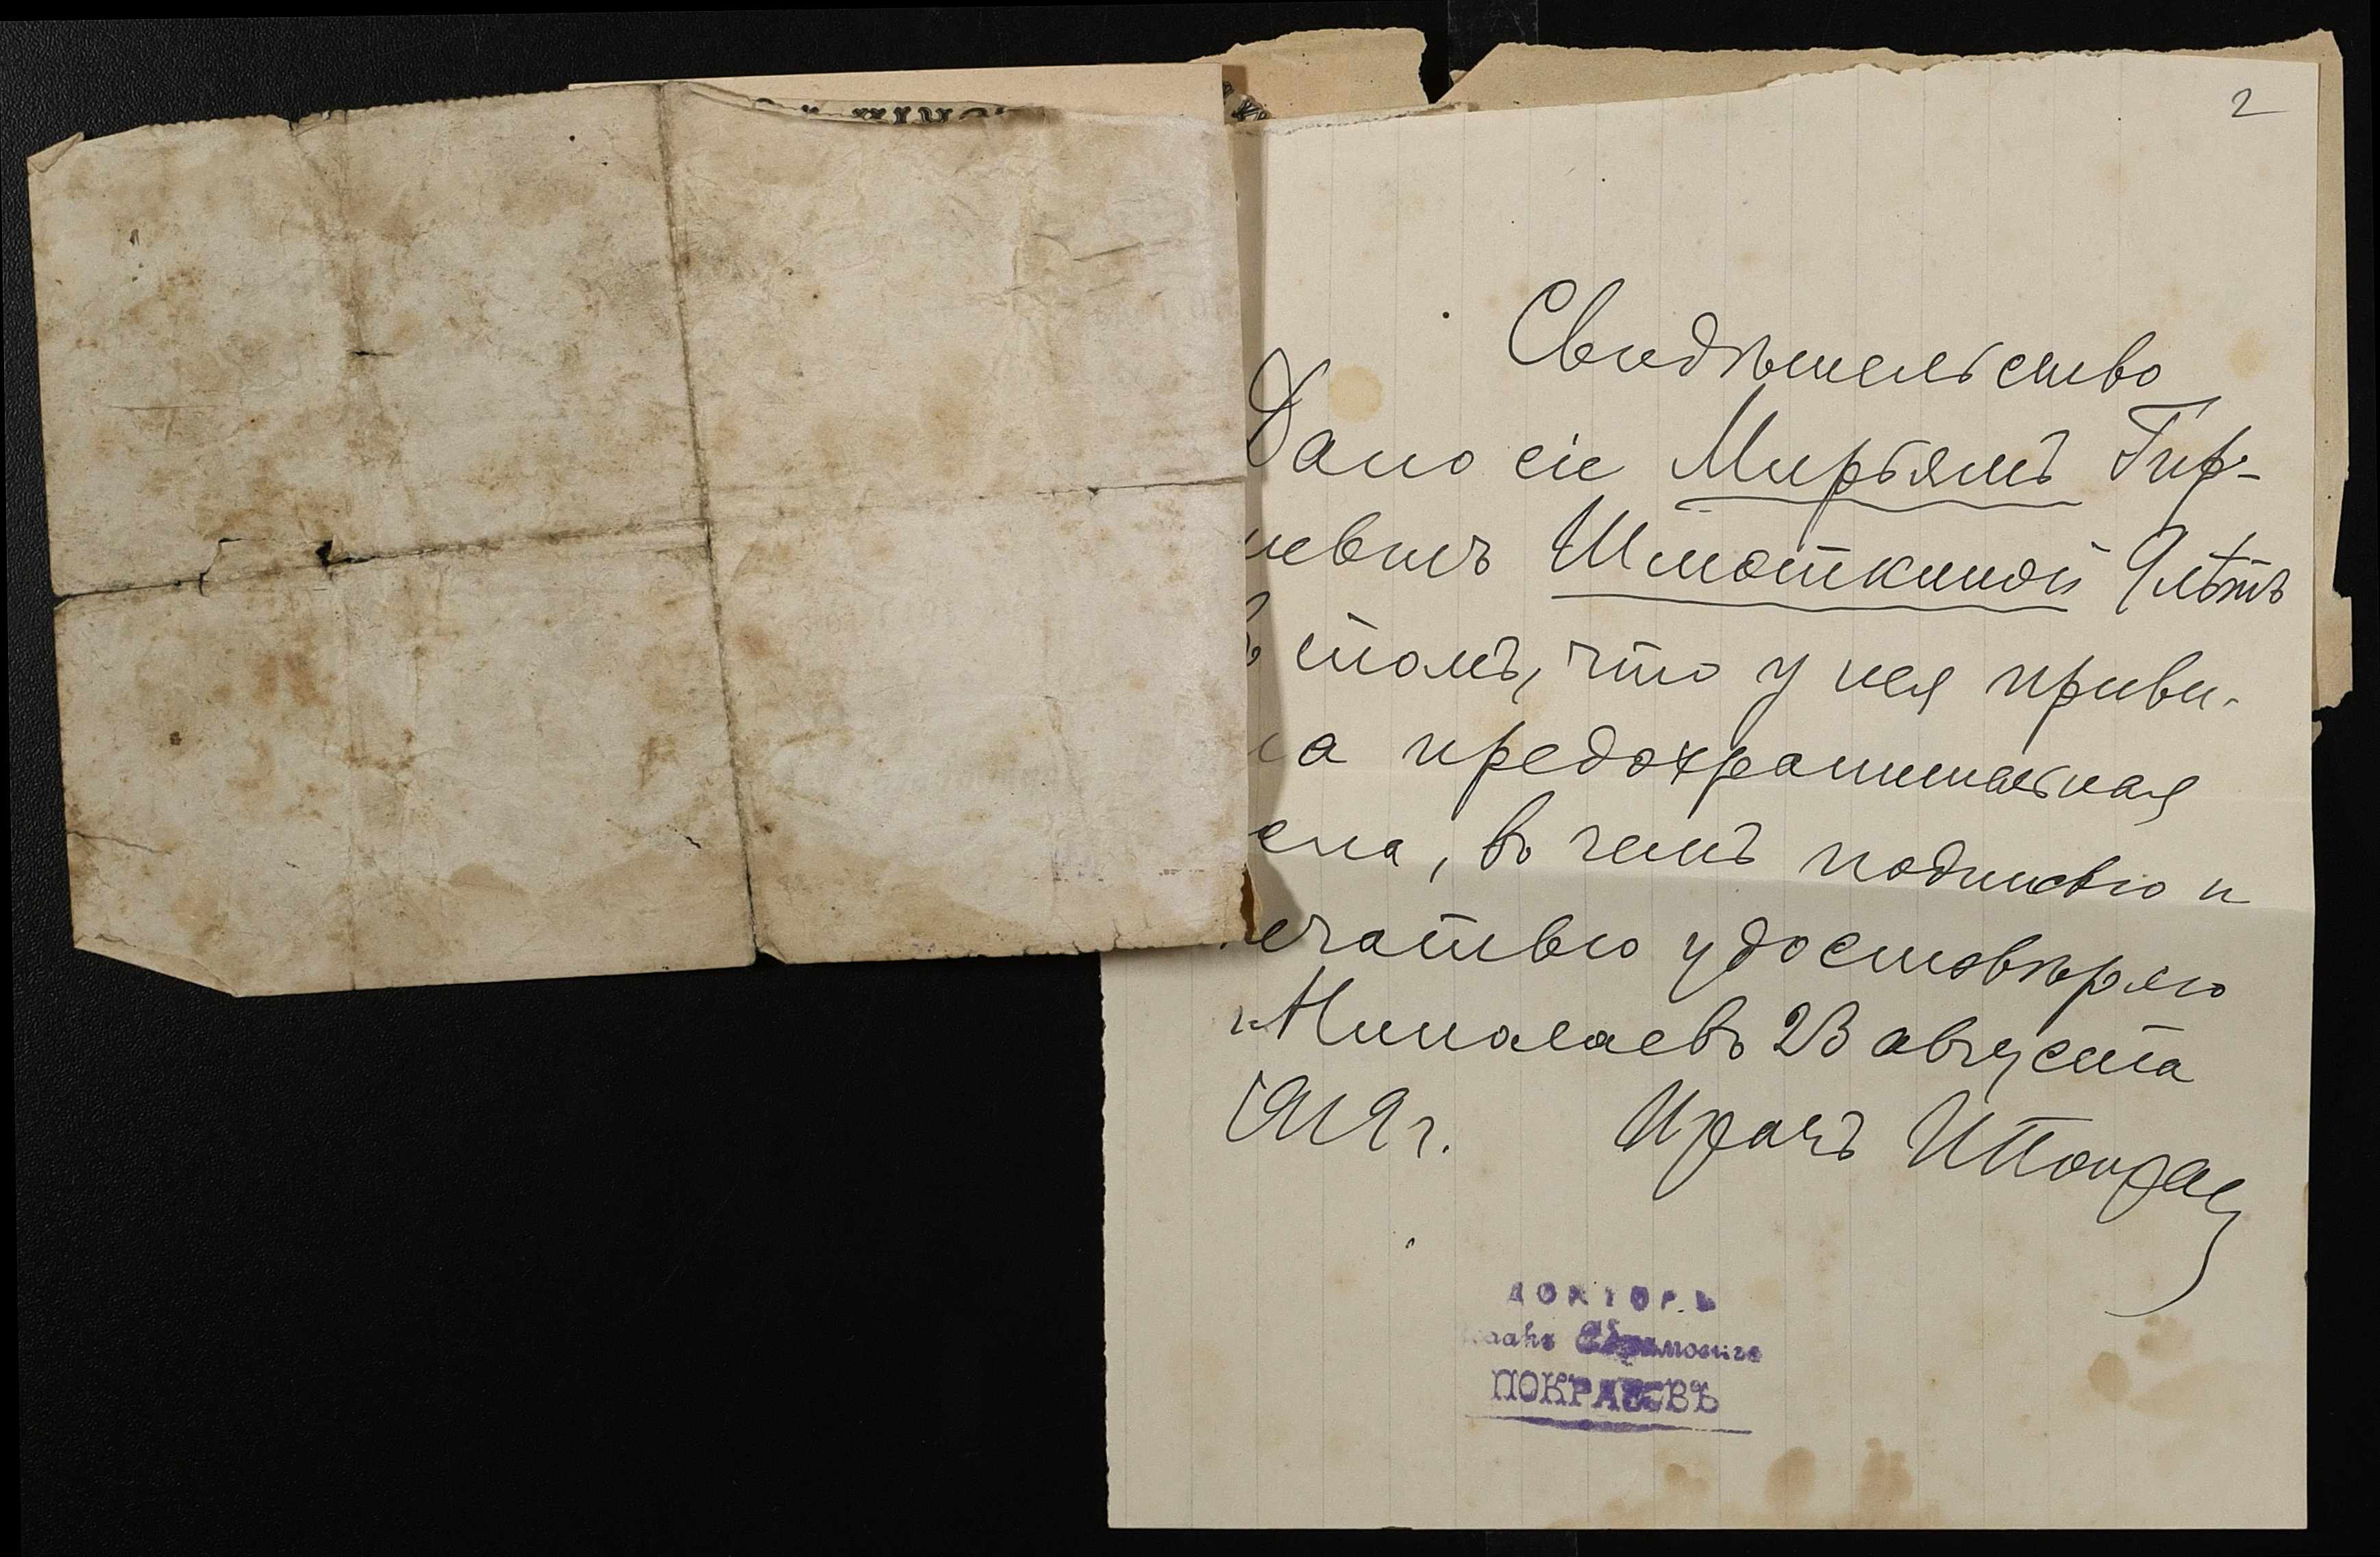 2
Свидѣтельство
Дано сіе Мирьямъ Гир-
шевнъ Шмоткиной 9 лѣтъ
въ томъ, что у нея приви-
та предохранительная
оспа, въ чемъ подписью и
печатью удостовѣряю
г. Николаевъ 23 августа
1919 г. Врачъ И Покрас
ДОКТОРЪ
ПОКРАСОВЪ